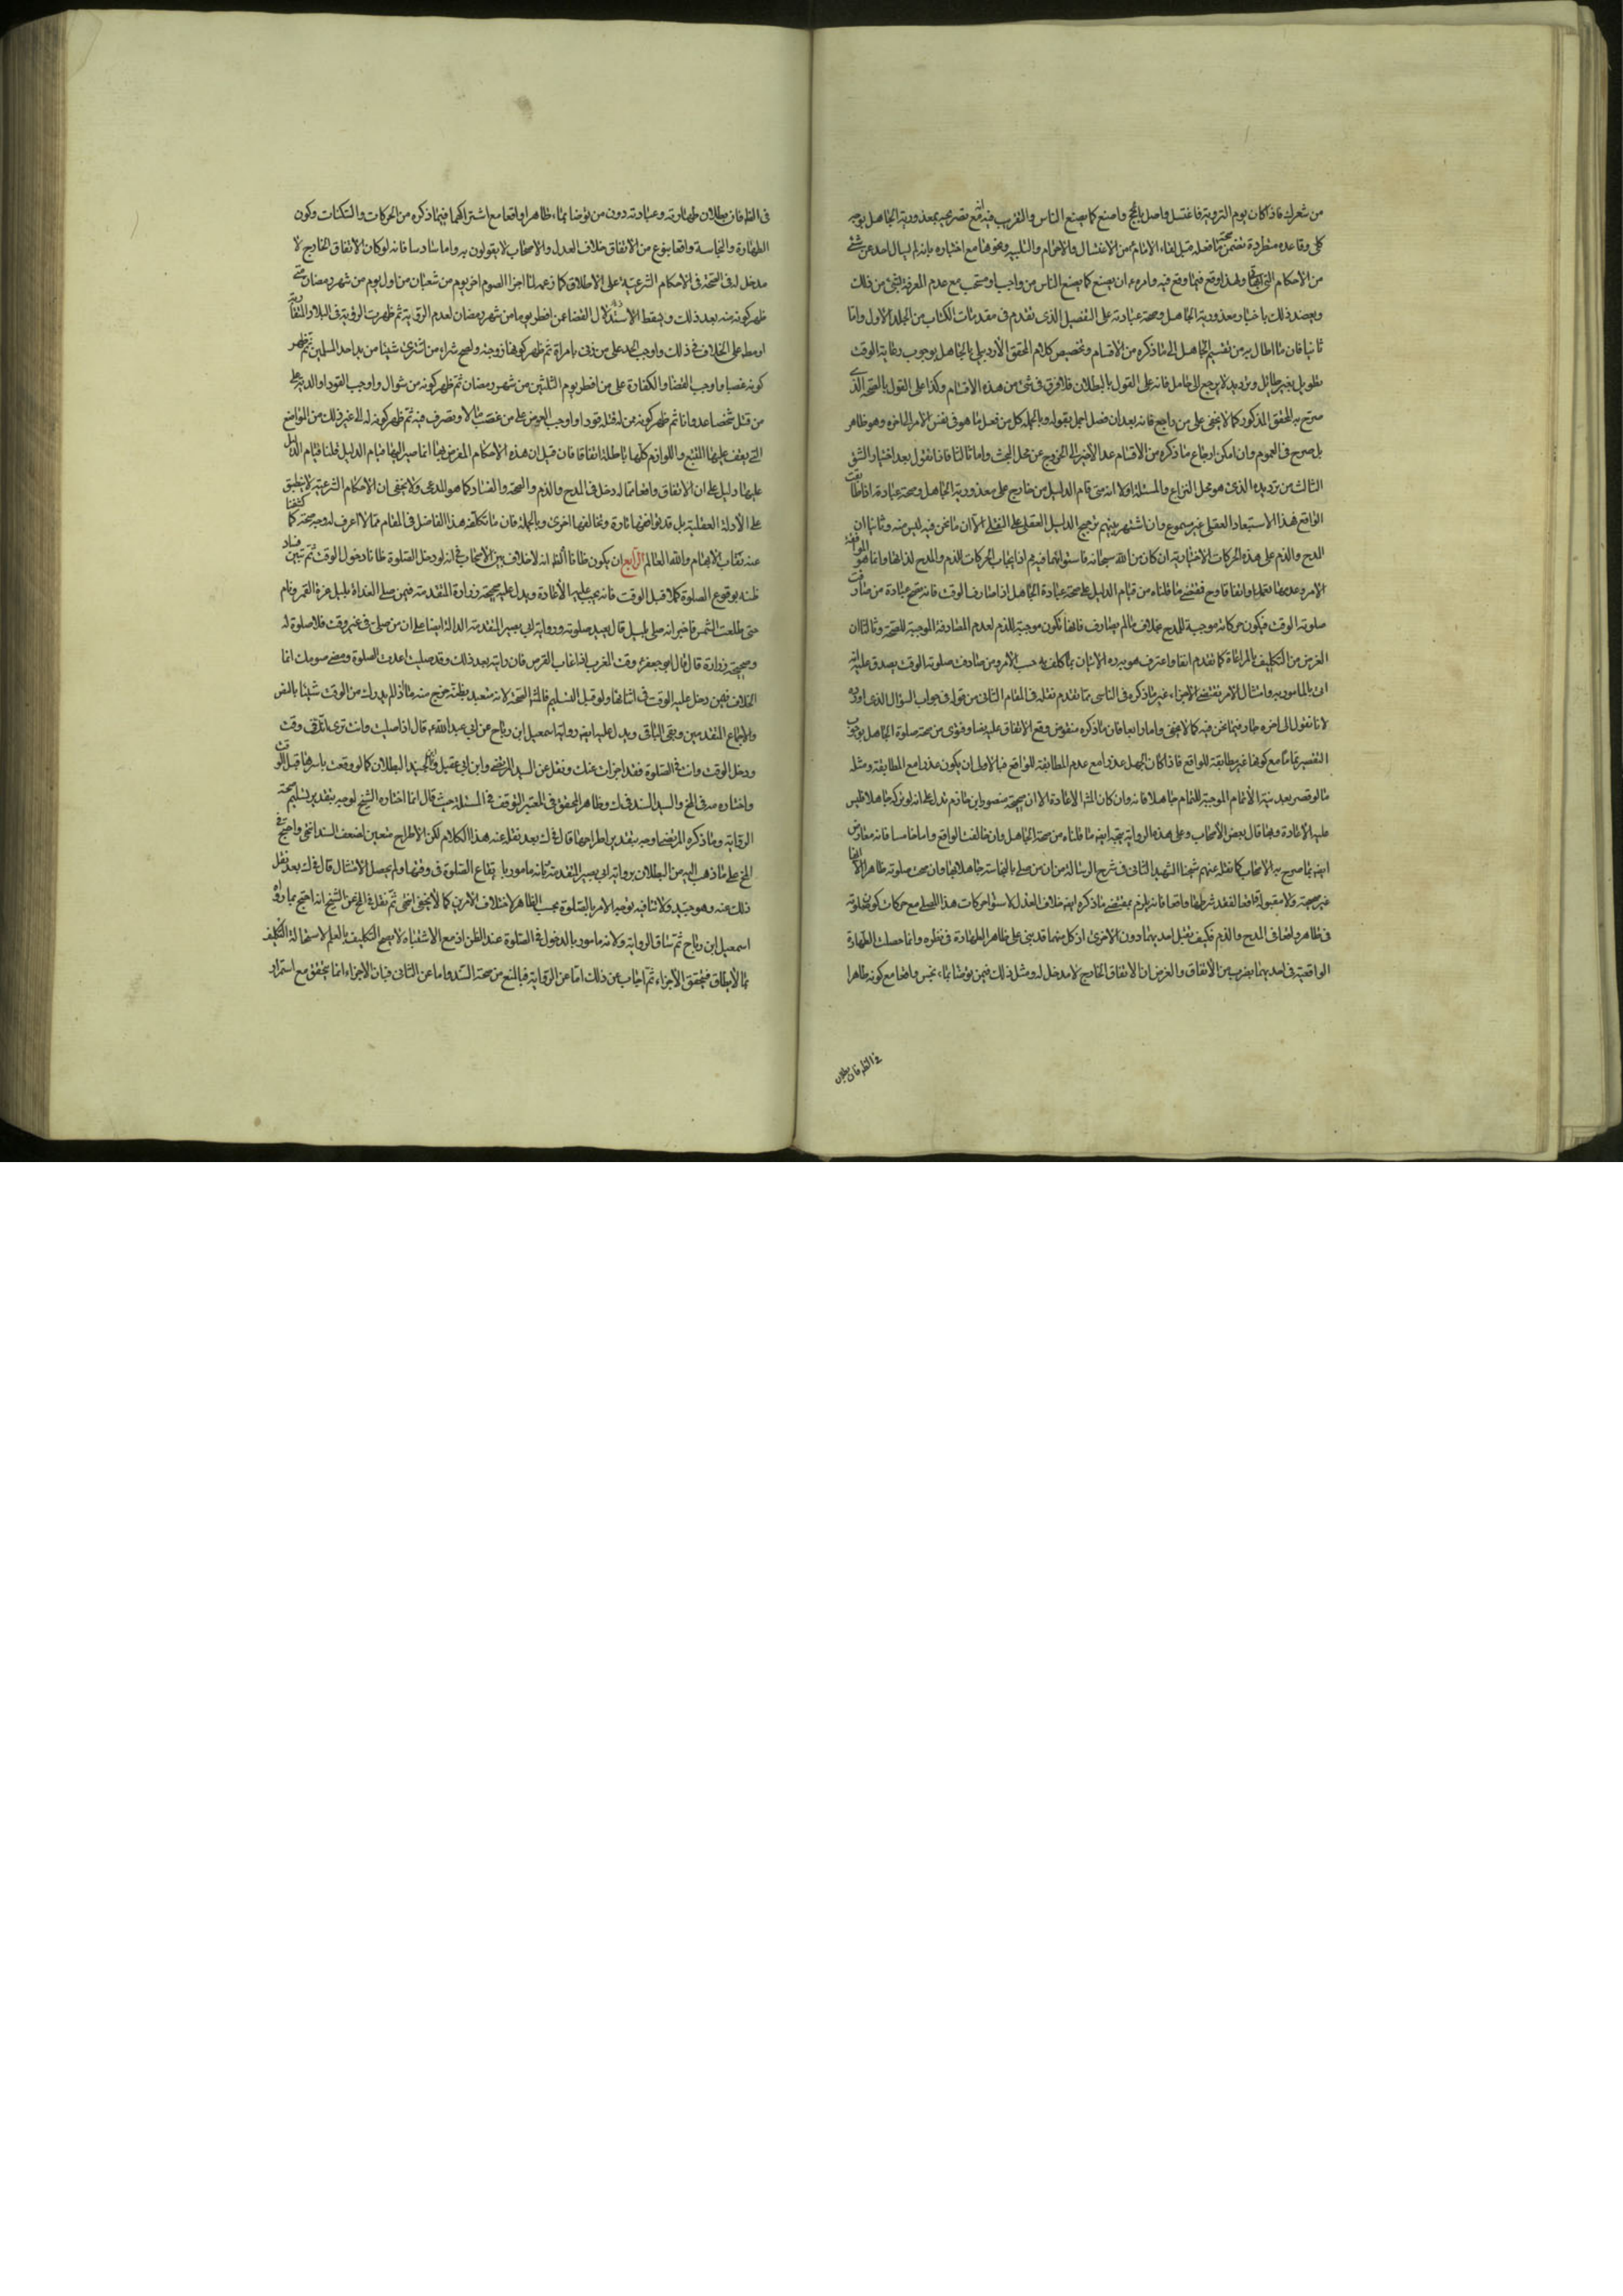 من شعرك فاذا كان يوم التروية فاغتسل واهل بالحج واصنع كما يصنع الناس والتقريب فيه انه مع تصريحه بمعذورية الجاهل بوجه
كلي وقاعدة مطردة تضمن صحة ما فعله قبل لقاء الامام من الاغتسال والاحرام والتلبية ونحوها مع اخباره بانه لم يسال احدا عن شئ
من الاحكام التي اتى بها ولهذا وقع فيما وقع فيه وامره ان يصنع كما يصنع الناس من واجب او مستحب مع عدم المعرفة بشئ من ذلك
ويعضد ذلك باخبار معذورية الجاهل وصحة عبادته على التفصيل الذي تقدم في مقدمات الكتاب من المجلد الاول واما
ثانيا فان ما اطال به من تقسيم الجاهل الى ما ذكره من الاقسام وتخصيص كلام المحقق الاردبيلي بالجاهل بوجوب رعاية الوقت
تطويل بغير طائل وترديد لا يرجع الى حاصل فانه على القول بالبطلان فلا فرق في شئ من هذه الاقسام وكذا على القول بالصحة الذي
صرح به المحقق المذكور كما لا يخفى على من راجع فانه بعد ان فصل اجمل بقوله وبالجملة كل من فعل ما هو في نفس الامر الى اخره وهو ظاهر
بل صريح في العموم وان امكن ارجاع ما ذكره من الاقسام عدا الاخير الى الخروج عن محل البحث واما ثالثا فانا نقول بعد اختيار الشق
الثالث من ترديده الذي هو محل النزاع والمسئلة اولا انه متى قام الدليل من خارج على معذورية الجاهل وصحة عبادته اذا طابقت
الواقع فهذا الاستبعاد العقلي غير مسموع وان اشتهر بينهم ترجيح الدليل العقلي على النقلي الا ان ما نحن فيه ليس منه وثانيا ان
المدح والذم على هذه الحركات الاختيارية ان كان من الله سبحانه فاستواؤهما فيه مم اذ ايجاب الحركات للذم والمدح لذاتها وانما هو لموافقة
الامر وعدمها تعمدا او اتفاقا وح فمقتضى ما قلناه من قيام الدليل على صحة عبادة الجاهل اذا صادف الوقت فانه تصح عبادة من صادفت
صلوته الوقت فيكون حركاته موجبة للمدح بخلاف ما لم يصادف فانها تكون موجبة للذم لعدم المصادفة الموجبة للصحة وثالثا ان
الغرض من التكليف بالمراعاة كما تقدم انفا واعترف هو به هو الاتيان بما كلف به حسب الامر ومن صادفت صلوته الوقت يصدق عليه انه
اتى بالمامور به وامتثال الامر يقتضي الاجزاء غير ما ذكره في الناسي مما تقدم نقله في المقام الثاني من قوله في جواب السؤال الذي اورده
لانا نقول الى اخره جار فيما نحن فيه كما لا يخفى واما رابعا فان ما ذكره منقوض بما وقع الاتفاق عليه نصا وفتوى من صحة صلوة الجاهل بوجوب
التقصير تماما مع كونها غير مطابقة للواقع فاذا كان الجهل عذرا مع عدم المطابقة للواقع فبالاولى ان يكون عذرا مع المطابقة ومثله
ما لو قصر بعد نية الاتمام الموجبة للتمام جاهلا فانه وان كان المش الاعادة الا ان صحيحة منصور بن حازم تدل على انه لو تركه جاهلا فليس
عليه الاعادة وبها قال بعض الاصحاب وعلى هذه الرواية يتجه ايضا ما قلناه من صحة الجاهل وان خالفت الواقع واما خامسا فانه معارض
ايضا بما صرح به الاصحاب كما نقله عنهم شيخنا الشهيد الثاني في شرح الرسالة من ان من صلى بالنجاسة جاهلا بها وان صحت صلوته ظاهرا الا انها
غير صحيحة ولا مقبولة واقعا لفقد شرطها واقعا فانه يلزم بمقتضى ما ذكره ايضا خلاف العدل لاستواء حركات هذا المصلي مع حركات كون صلوته
في طاهر واقعا في المدح والذم فكيف تقبل احديهما دون الاخرى اذ كل منهما قد بنى على ظاهر الطهارة في نظره وانما حصلت الطهارة
الواقعية في احديهما بضرب من الاتفاق والغرض ان الاتفاق الخارج لا مدخل له ومثل ذلك فيمن توضا بماء نجس واقعا مع كونه طاهرا
في الظ فان بطلان
في الظ فان بطلان طهارته وعبادته دون من توضا بماء ظاهرا واقعا مع اشتراكهما فيما ذكره من الحركات والسكنات وكون
الطهارة والنجاسة واقعا بنوع من الاتفاق خلاف العدل والاصحاب لا يقولون به واما سادسا فانه لو كان الاتفاق الخارج لا
مدخل له في الصحة في الاحكام الشرعية على الاطلاق كما زعمه لما اجزا الصوم اخر يوم من شعبان من اول يوم من شهر رمضان متى
ظهر كونه منه بعد ذلك ويسقط الاستدلال القضا عمن افطر يوما من شهر رمضان لعدم الرؤية ثم ظهرت الرؤية في البلاد المتقاربة
او مطه على الخلاف في ذلك واوجب الحد على من زنى بامراة ثم ظهر كونها زوجته ولصح شراء من اشترى شيئا من يد احد المسلمين ثم ظهر
كونه غصبا واوجب القضا والكفارة على من افطر يوم الثلثين من شهر رمضان ثم ظهر كونه من شوال واوجب القود او الدية على
من قتل شخصا عدوانا ثم ظهر كونه ممن له قتله قودا واوجب العوض على من غصب مالا وتصرف فيه ثم ظهر كونه له الى غير ذلك من المواضع
التي يقف عليها المتتبع واللوازم كلها باطلة اتفاقا فان قيل ان هذه الاحكام المفروض بها انما صير اليها لقيام الدليل قلنا قيام الدليل
عليها دليل على ان الاتفاق واقعا مما له دخل في المدح والذم والصحة والفساد كما هو المدعى ولا يخفى ان الاحكام الشرعية لا تنطبق
على الادلة العقلية بل قد توافقها تارة وتخالفها اخرى وبالجملة فان ما تكلفه هذا الفاضل في المقام مما لا اعرف له وجه صحة كما كشفنا
عنه نقاب الابهام والله العالم الرابع ان يكون ظانا الظ انه لا خلاف بين الاصحاب في انه لو دخل الصلوة ظانا دخول الوقت ثم تبين فساد
ظنه بوقوع الصلوة كملا قبل الوقت فانه يجب عليه الاعادة ويدل عليه صحيحة زرارة المتقدمة فيمن صلى الغداة بليل غره القمر ونام
حتى طلعت الشمس فاخبر انه صلى بليل قال يعيد صلوته ورواية ابي بصير المتقدمة الدالة ايضا على ان من صلى في غير وقت فلا صلوة له
وصحيحة زرارة قال قال ابو جعفر ع وقت المغرب اذا غاب القرص فان رايته بعد ذلك وقد صليت اعدت الصلوة ومضى صومك انما
الخلاف فيمن دخل عليه الوقت في اثنائها ولو قبل التسليم فالمش الصحة لانه متعبد بظنه خرج منه ما اذا لم يدرك من الوقت شيئا بالنص
والاجماع المتقدمين وبقي الباقي ويدل عليه ايضا رواية اسمعيل ابن رباح عن ابي عبد الله ع قال اذا صليت وانت ترى انك في وقت
ودخل الوقت وانت في الصلوة فقد اجزات عنك ونقل عن السيد المرتضى وابن ابي عقيل وابن الجنيد البطلان كما لو وقعت باسرها قبل الوقت
واختاره مه في المخ والسيد السند في ك وظاهر المحقق في المعتبر التوقف في المسئلة حيث قال انما اختاره الشيخ لوجه بتقدير تسليم صحة
الرواية وما ذكره المرتضى اوجه بتقدير اطراحها قال في ك بعد نقله عنه هذا الكلام لكن الاطراح متعين لضعف السند انتهى واحتج في
المخ على ما ذهب اليه من البطلان برواية ابي بصير المتقدمة بانه مامور بايقاع الصلوة في وقتها ولم يحصل الامتثال قال في ك بعد نقل
ذلك عنه وهو جيد ولا ينافيه توجه الامر بالصلوة بحسب الظاهر لاختلاف الامرين كما لا يخفى انتهى ثم نقل في المخ عن الشيخ انه احتج بما رواه
اسمعيل ابن رباح ثم ساق الرواية ولانه مامور بالدخول في الصلوة عند الظن اذ مع الاشتباه لا يصح التكليف بالعلم لاستحالة التكليف
بما لا يطاق فيتحقق الاجزاء ثم اجاب عن ذلك اما عن الرواية فبالمنع من صحة السند واما عن الثاني فبان الاجزاء انما يتحقق مع استمرار